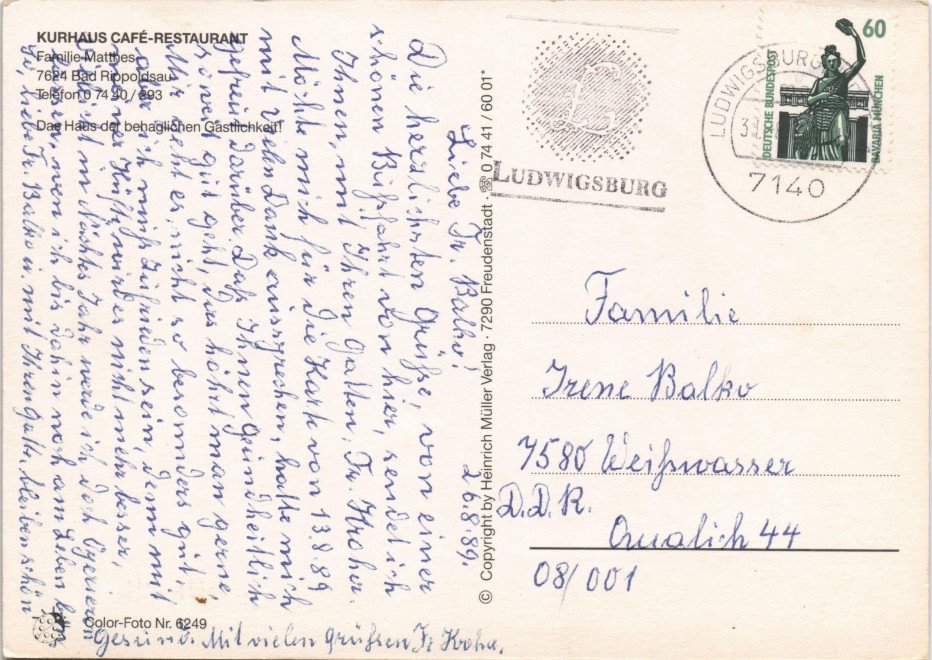 KURHAUS CAFÉ-RESTAURANT
Familie Matthes
7624 Bad Rippoldsau
Telefon 0 74 40 / 893
Das Haus der behaglichen Gastlichkeit!
26.8.89.
Liebe Fr. Balko!
Die herzlichsten Grüße, von einer
schönen Busfahrt von hier, sendet ich
Ihnen, mit Ihren Gatten, Fr. Kroher.
Möchte mich für die Karte von 13.8.89
mit vielen Dank aussprechen, hatte mich
gefreut darüber. Daß Ihnen gesundheitlich
so weit gut geht, das höhrt man gerne,
Mir geht es nicht so besonders gut,
aber ich muß zufrieden sein, denn mit
meiner Hüfte, wird es nicht mehr besser,
Nächstes Jahr werde ich doch
wen ich bis dahin noch am Leben bin
So, liebe Fr. Balko u. mit Ihren Gatte, bleiben schön
Gesund. Mit vielen Grüßen Fr
Color-Foto Nr. 6249
© Copyright by Heinrich Müller Verlag · 7290 Freudenstadt · ☎ 0 74 41 / 60 01*
LUDWIGSBURG
LUDWIGSBURG
7140
60
DEUTSCHE BUNDESPOST
BAVARIA MÜNCHEN
Familie
Irene Balko
7580 Weißwasser
D.D.R.
44
08/001